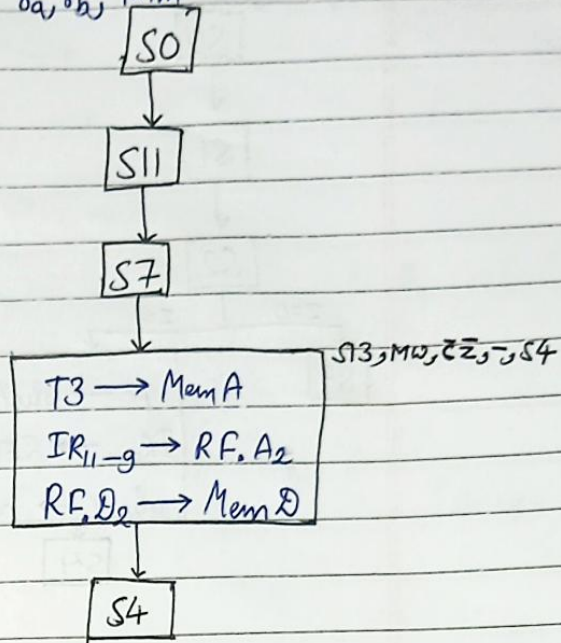 S0
S11
S7
S13, MW, C̄Z̄, -, S4
T3 → MemA
IR11-9 → RF.A2
RF.D2 → MemD
S4